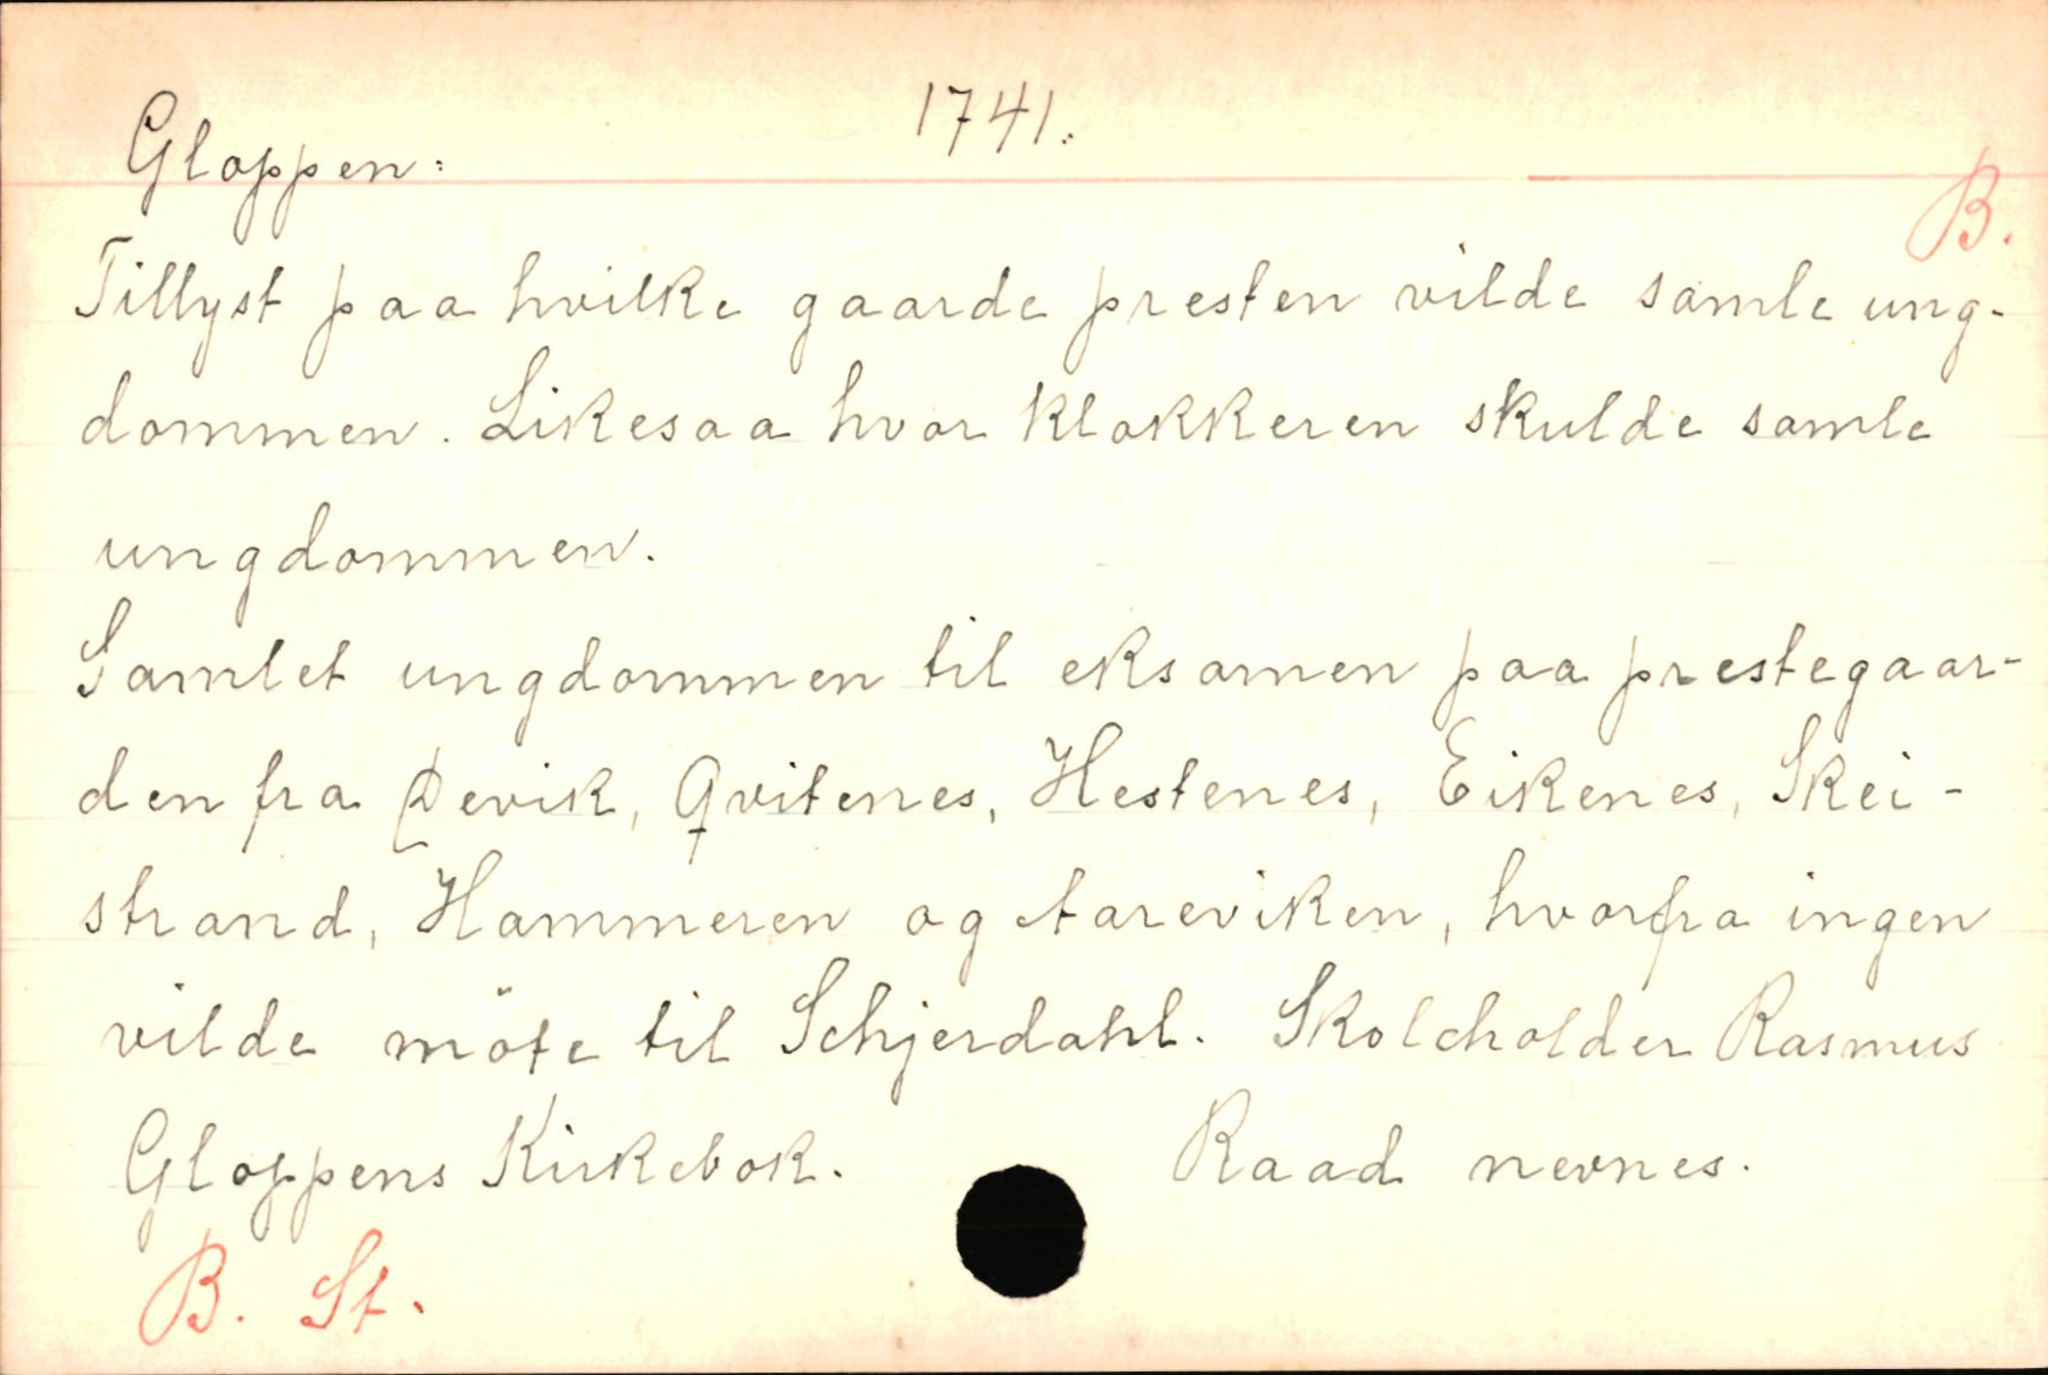 1741.
Gloppen:
B.
Tillyst paa hvilke gaarde presten vilde samle ung-
dommen. Likesaa hvor klokkeren skulde samle
ungdommen.
Samlet ungdommen til eksamen paa prestegaar-
den fra Devik, Qvitenes, Hestenes, Eikenes, Skei-
strand, Hammeren og Areviken, hvorfra ingen
vilde möte til Schjerdahl. Skoleholder Rasmus
Gloppens Kirkebok. Raad nevnes.
B. St.